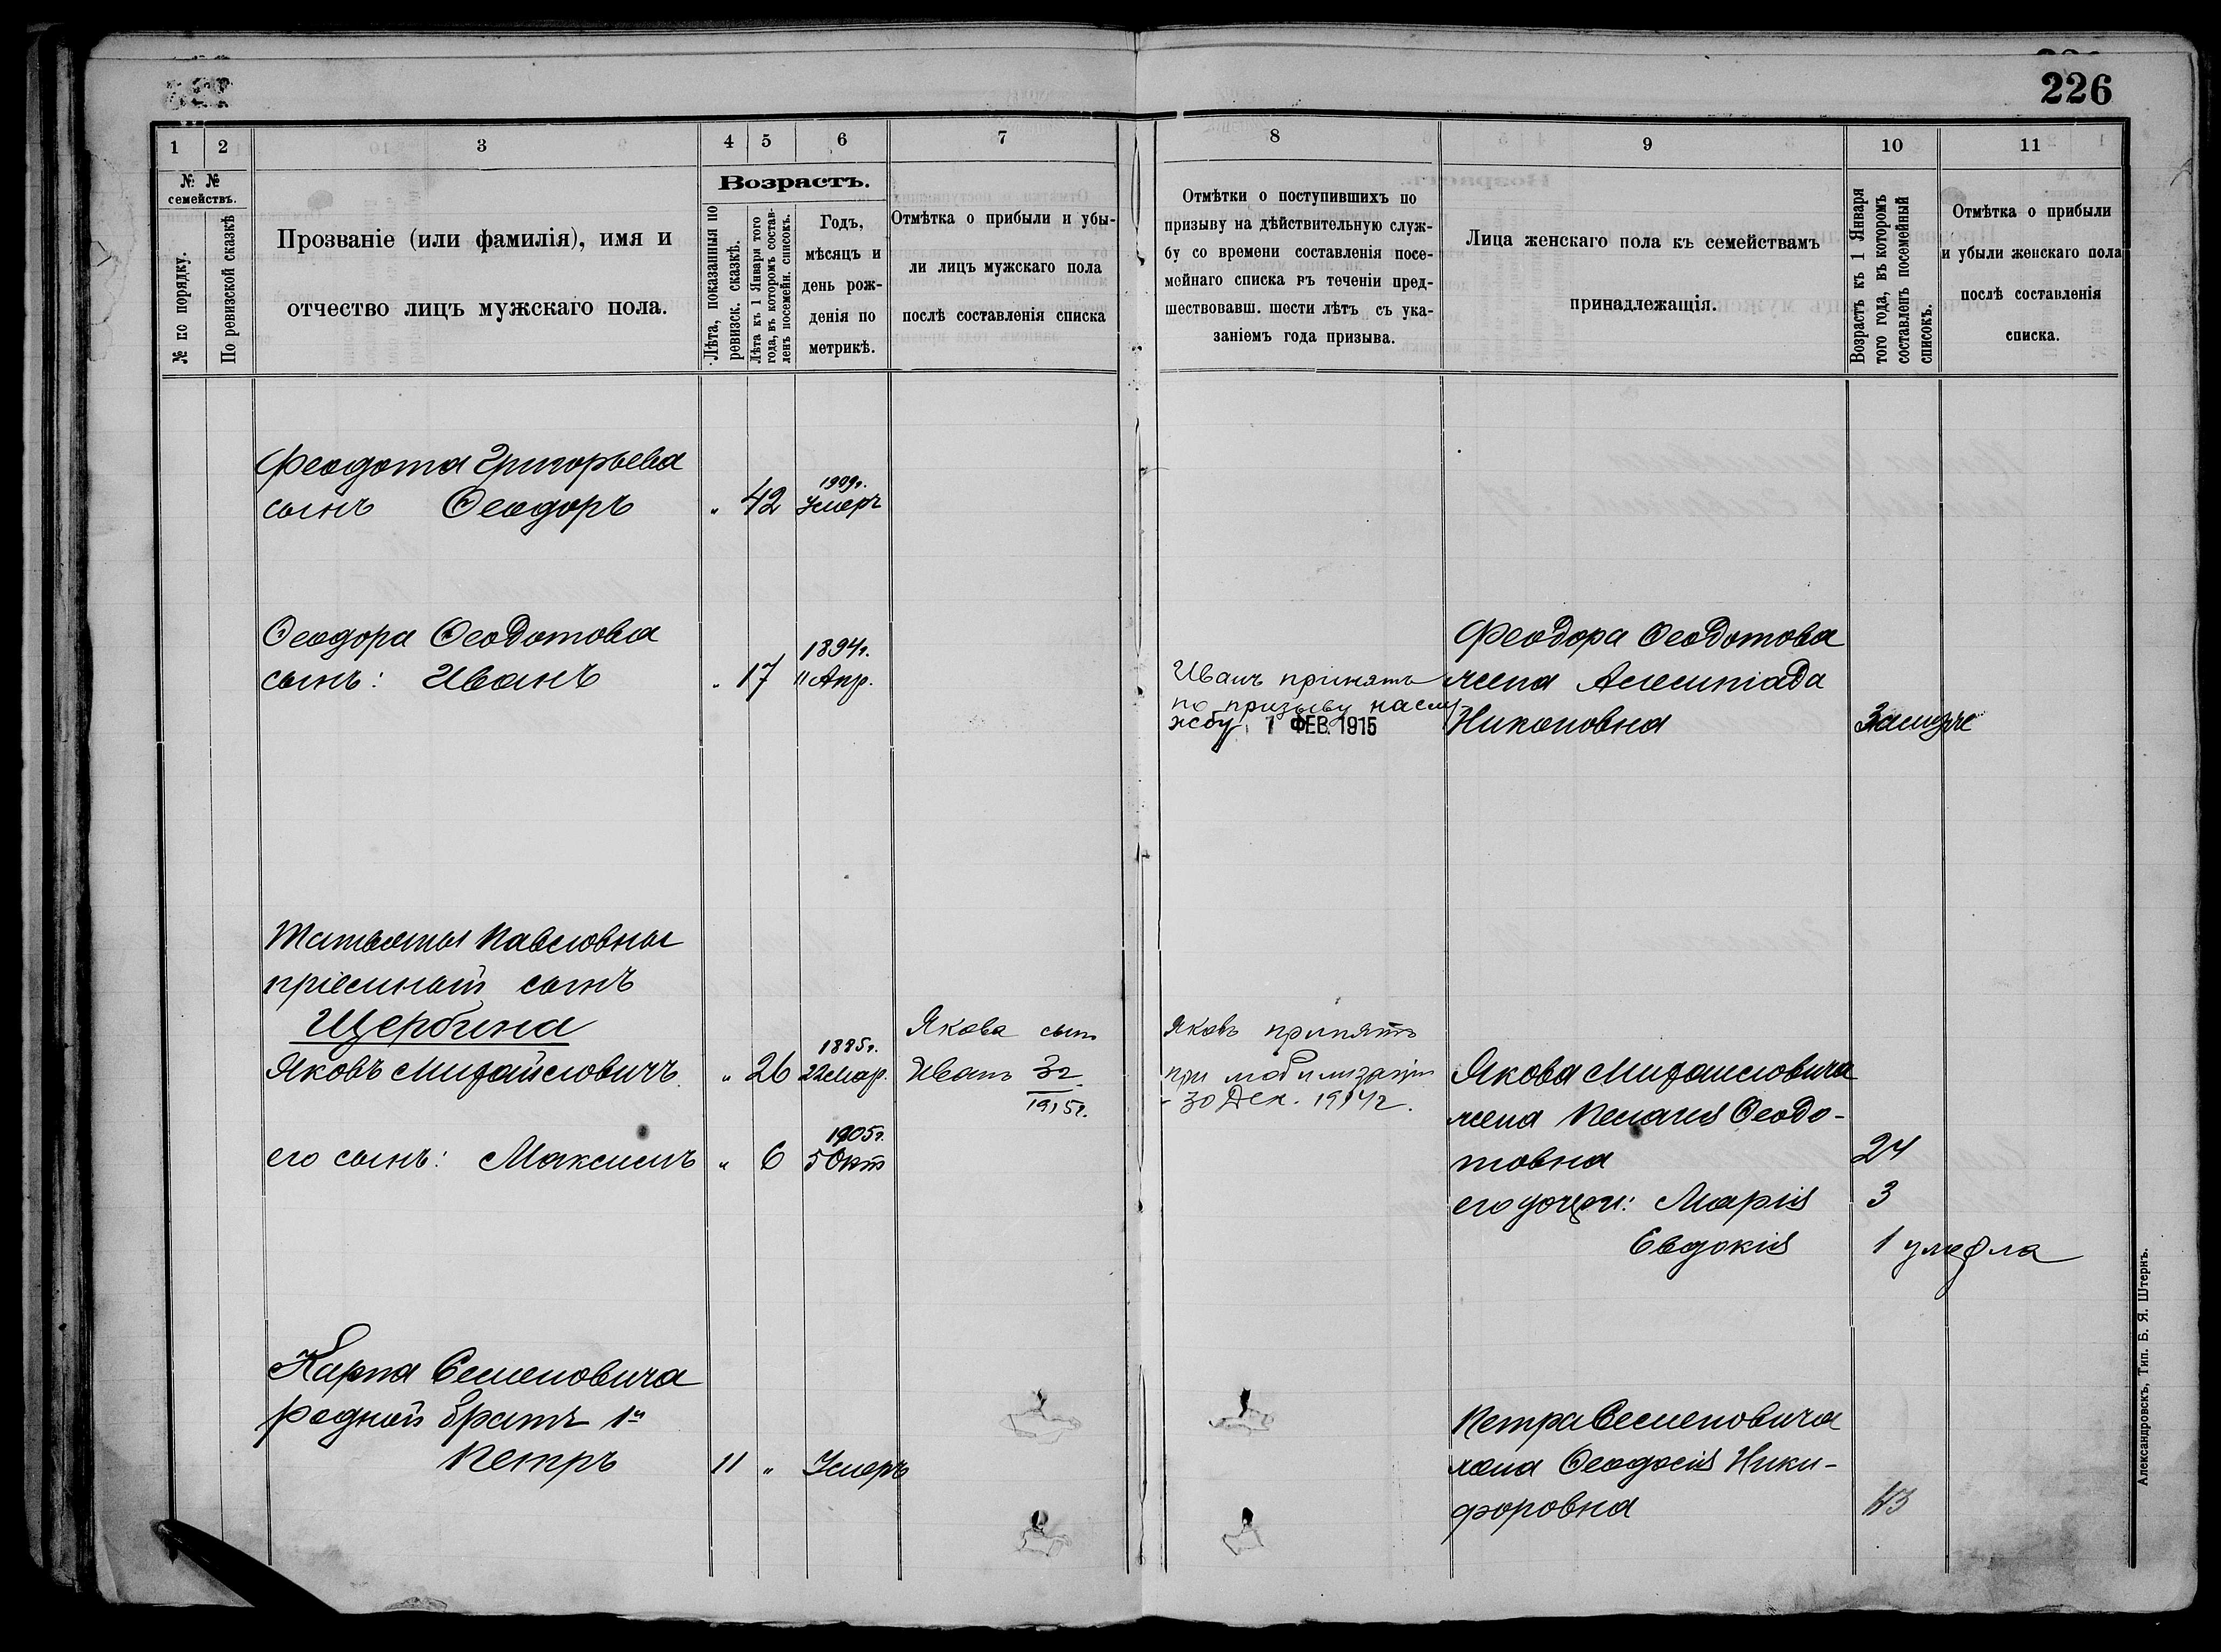 226
1
2
3
4
5
6
7
8
9
10
11
№ №
семействъ.
№ по порядку.
По ревизской сказкѣ
Прозваніе (или фамилія), имя и
отчество лицъ мужскаго пола.
Возрастъ.
Лѣта, показанныя по
ревизск. сказкѣ.
Лѣта къ 1 Января того
года, въ которомъ состав-
ленъ посемейн. списокъ.
Годъ,
мѣсяцъ и
день рож-
денія по
метрикѣ.
Отмѣтка о прибыли и убы-
ли лицъ мужскаго пола
послѣ составленія списка
Отмѣтки о поступившихъ по
призыву на дѣйствительную служ-
бу со времени составленія посе-
мейнаго списка въ теченіи пред-
шествовавш. шести лѣтъ съ ука-
заніемъ года призыва.
Лица женскаго пола къ семействамъ
принадлежащія.
Возрастъ къ 1 Января
того года, въ которомъ
составленъ посемейный
списокъ.
Отмѣтка о прибыли
и убыли женскаго пола
послѣ составленія
списка.
Феодота Григорьева
сынъ Ѳеодоръ " 42 1909г. Умеръ
Ѳеодора Ѳеодотова
сынъ: Иванъ " 17 1894г. 11 Апр.
Иванъ принятъ
по призыву на слу
жбу 1 ФЕВ. 1915
Феодора Ѳеодотова
жена Асклипіада
Никоновна Замуже
Татьяны Павловны
пріемный сынъ
Щербина
Яковъ Михайловичъ " 26 1885г. 22 Мар.
Якова сын
Иванъ 3г.
1915г.
Яковъ принятъ
при мобилизаціи
30 Дек. 1914г.
его сынъ: Максимъ " 6 1905г. 5 Окт
Якова Михайловича
жена Пелагія Ѳеодо-
товна 24
его дочери: Марія 3
Евдокія 1 умерла
Карпа Семеновича
родной братъ 1й
Петръ 11 " Умеръ
Петра Семеновича
жена Ѳеодосія Ники-
форовна 43
Александровскъ, Тип. Б. Я. Штернъ.